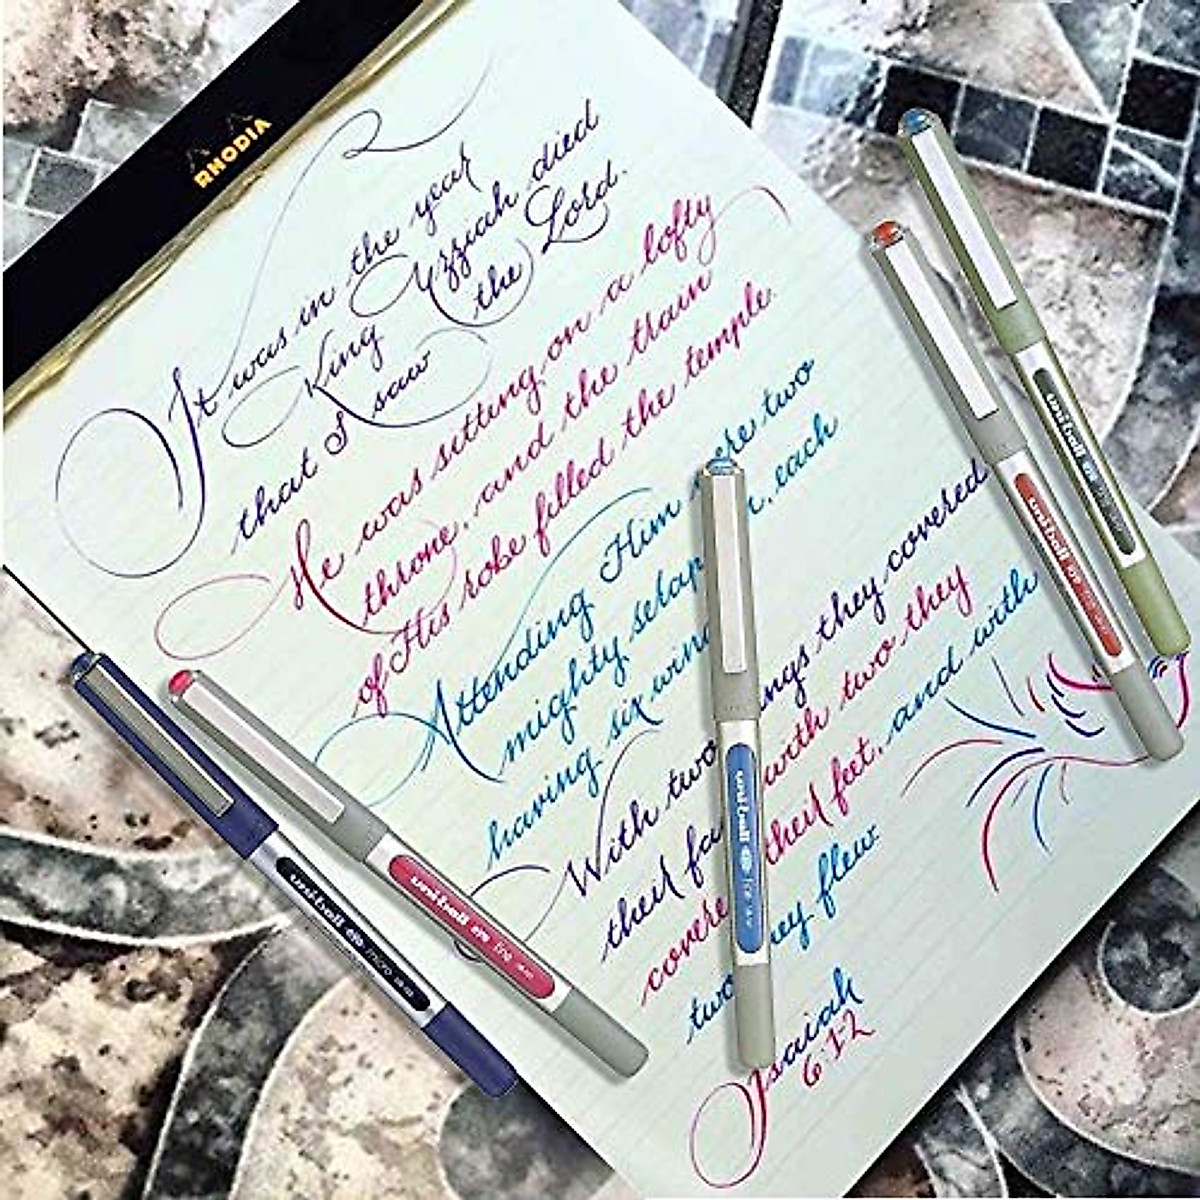 RHODIA
It was in the year
King Uzziah died
that I saw the Lord.
He was sitting on a lofty
throne, and the train
of His robe filled the temple.
Attending Him were two
mighty seraphim, each
having six wings
With two wings they covered
their faces with two they
covered their feet, and with
two they flew
Isaiah
6:1-2
uni-ball eye micro
uni-ball eye fine
uni-ball eye fine
uni-ball eye
uni-ball eye